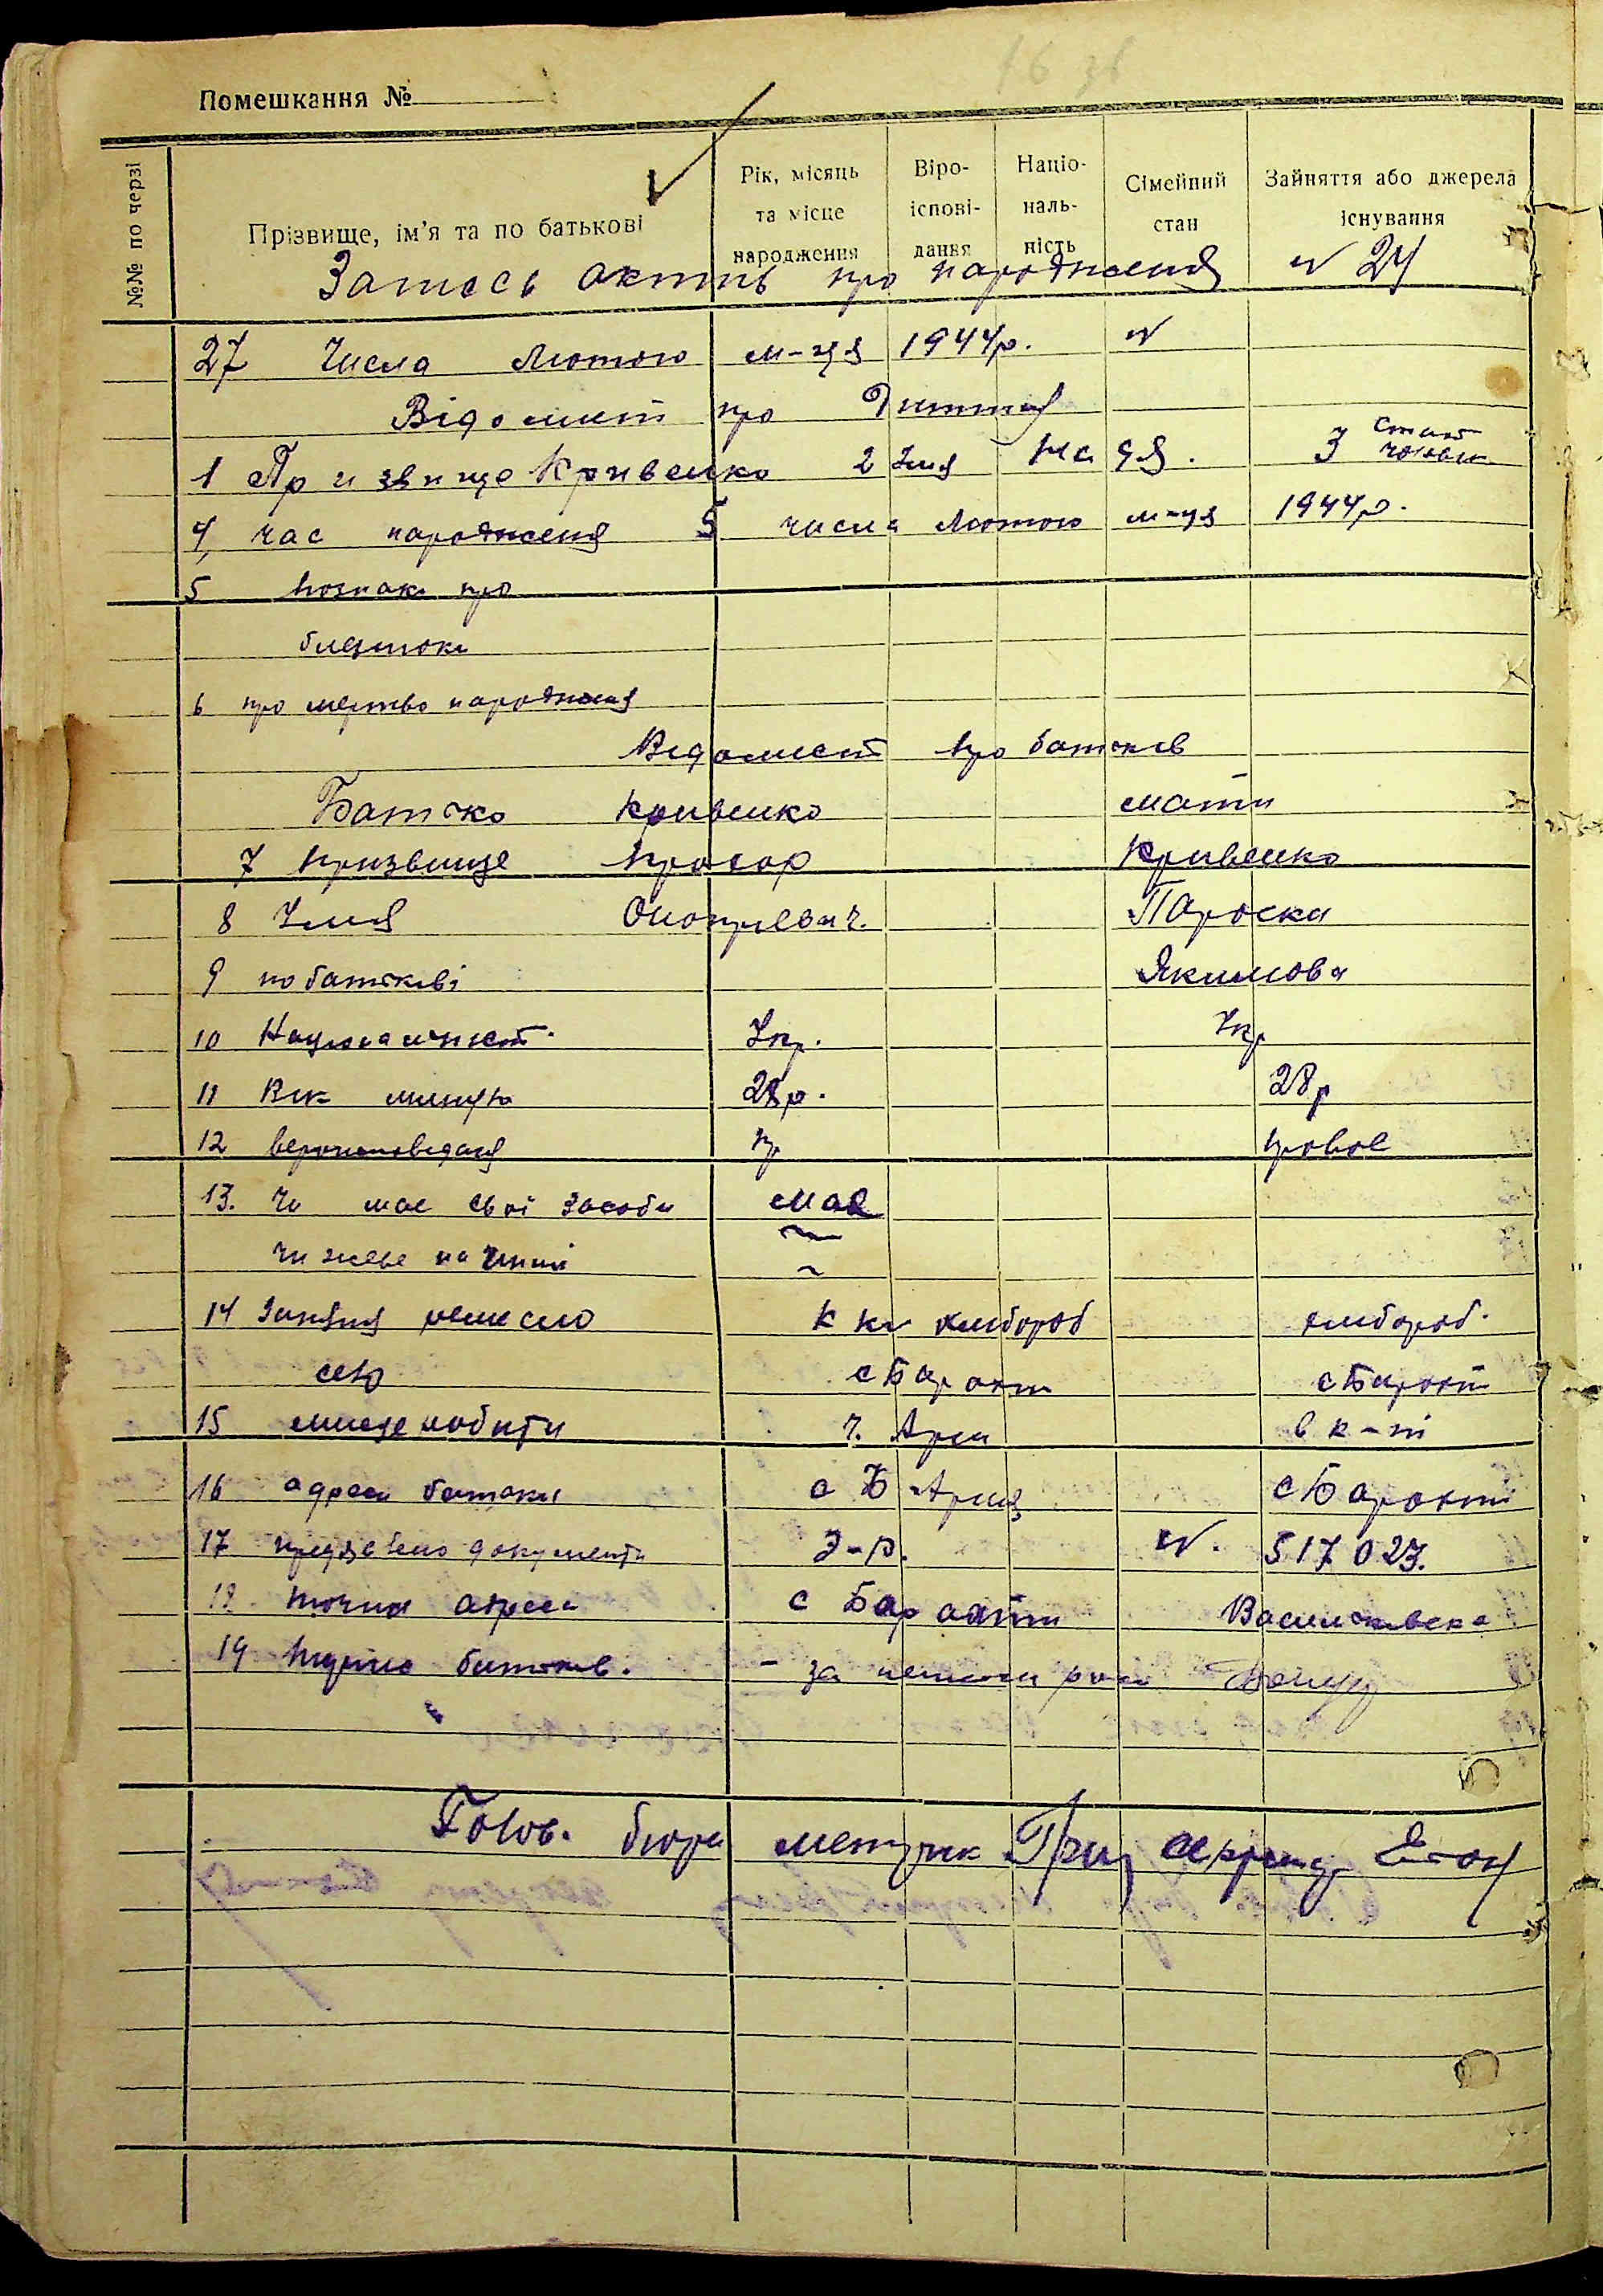 16 зв
Помешкання №
№№ по черзі
Прізвище, ім'я та по батькові
Рік, місяць та місце народження
Віро-іспові-дання
Націо-наль-ність
Сімейний стан
Зайняття або джерела існування
Запись актив про народження № 24
27 числа Лютого м-ця 1944р. №
Відомист про Диття
1 Призвище Кривенко 2 Імя 3 Стат чоловіч
4, час народженя 5 числа Лютого м-ця 1944р.
5 познаки про
близтоки
6 про мертво народженя
Ведомист про батьків
Батько Кривенко мати
7 призвище Прохор Кривенко
8 Імя Оноприевич. Пароска
9 по батькові Якимова
10 Националност. Укр. Укр
11 Вик 28р. 28р
12 вероисповеданя пр правос
13. Чи мае свої засоби мае
чи живе на чиїй
14 Занятя ремесло хлибороб хлибороб.
село с Барахти с Барахти
15 мисце роботи Ч. Арми в к-ті
16 адреси батьки с Барахти
17 предявлено документи №. 517023.
18 точная адреса с Барахти Васильківска
19 пидпис батьків. - за неписм роз
Голов. бюра метрик